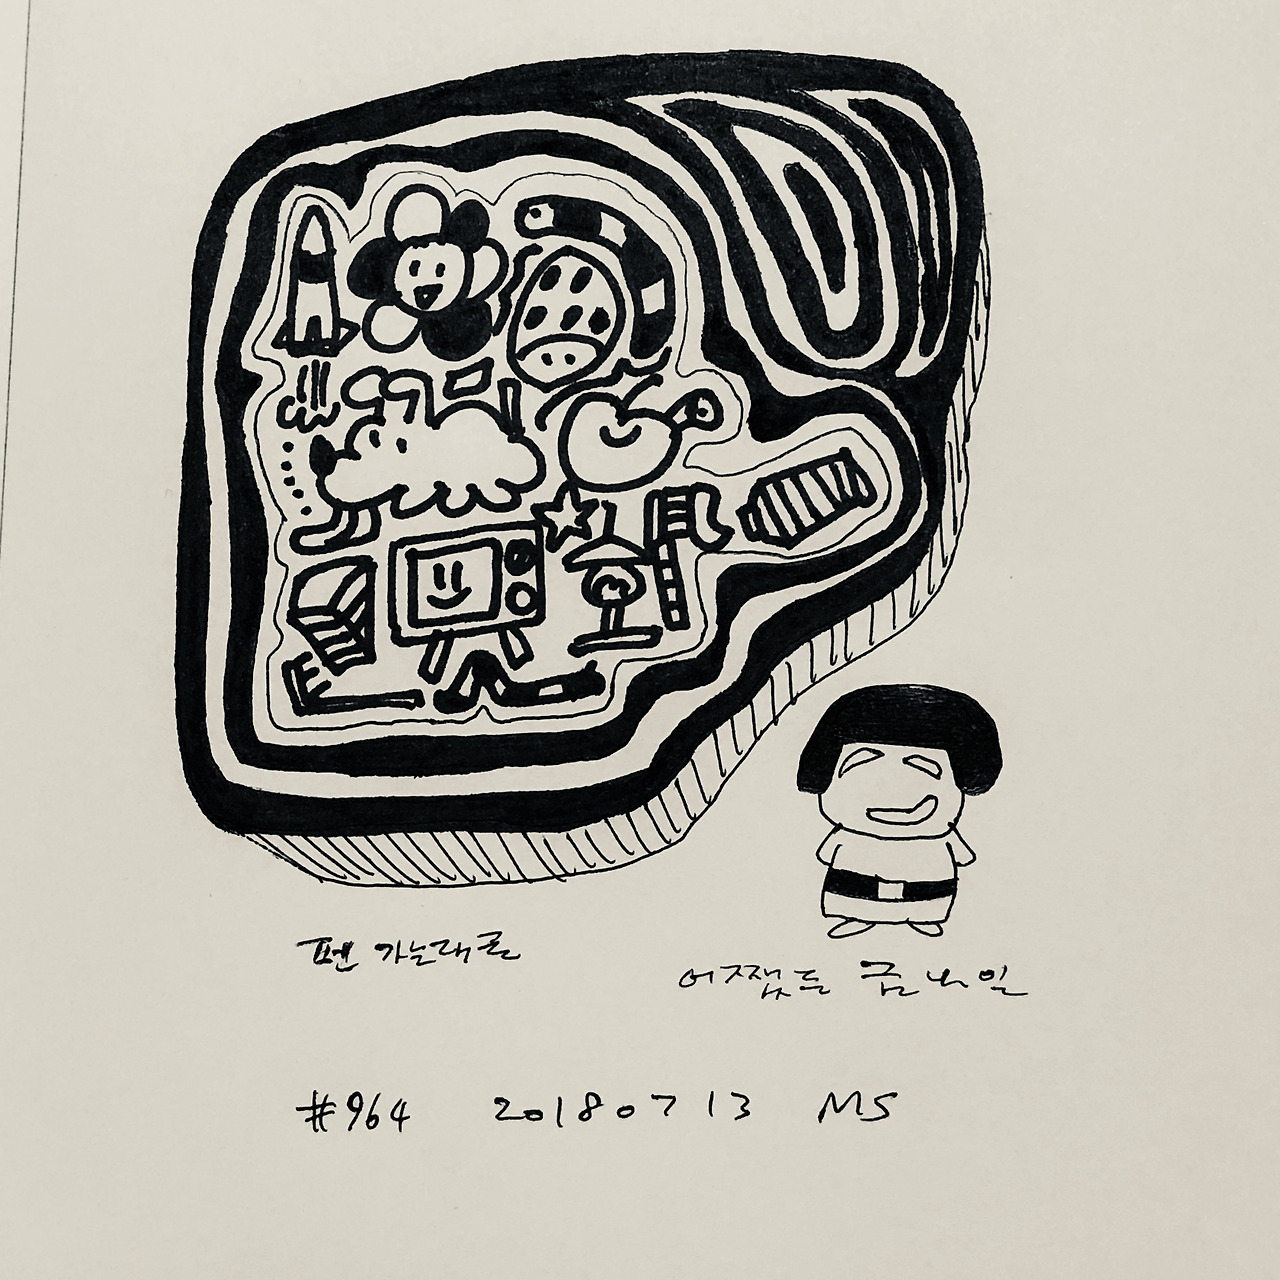 펜 가는대로
어쨌든 금요일
#964 20180713 MS